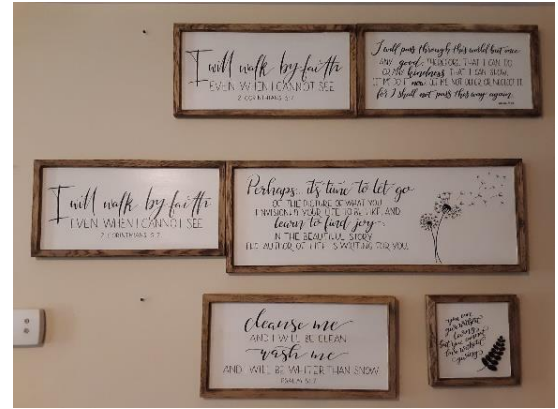 I will walk by faith
EVEN WHEN I CANNOT SEE
2 CORINTHIANS 5:7
I will pass through this world but once
ANY good, THEREFORE, THAT I CAN DO
OR ANY kindness THAT I CAN SHOW,
LET ME DO IT now. LET ME NOT DEFER OR NEGLECT IT
for I shall not pass this way again.
I will walk by faith
EVEN WHEN I CANNOT SEE
2 CORINTHIANS 5:7
Perhaps... it's time to let go
OF THE PICTURE OF WHAT YOU
ENVISIONED YOUR LIFE TO BE LIKE, AND
learn to find joy
IN THE BEAUTIFUL STORY
THE AUTHOR OF LIFE IS WRITING FOR YOU.
cleanse me
AND I WILL BE CLEAN
wash me
AND I WILL BE WHITER THAN SNOW
PSALM 51:7
you can
give without
loving,
but you cannot
love without
giving.